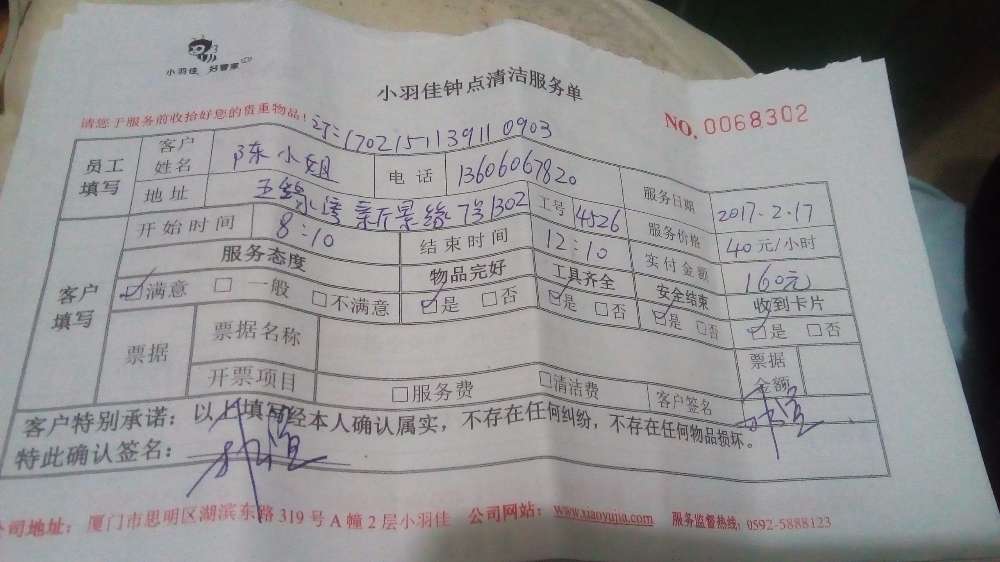 小羽佳 好管家
小羽佳钟点清洁服务单
请您于服务前收拾好您的贵重物品！ 订：170215113911 0903
NO. 0068302
员工填写 客户姓名 陈小姐 电话 13606067820 服务日期 2017.2.17
地址 新景 7号1302 工号 4526 服务价格 40元/小时
开始时间 8:10 结束时间 12:10 实付金额 160元
客户填写 服务态度 物品完好 工具齐全 安全结束 收到卡片
☑满意 □一般 □不满意 ☑是 □否 ☑是 □否 ☑是 □否 ☑是 □否
票据 票据名称 票据金额
开票项目 □服务费 □清洁费 客户签名
客户特别承诺：以上填写经本人确认属实，不存在任何纠纷，不存在任何物品损坏。
特此确认签名：
公司地址：厦门市思明区湖滨东路319号A幢2层小羽佳 公司网站：www.xiaoyujia.com 服务监督热线：0592-5888123